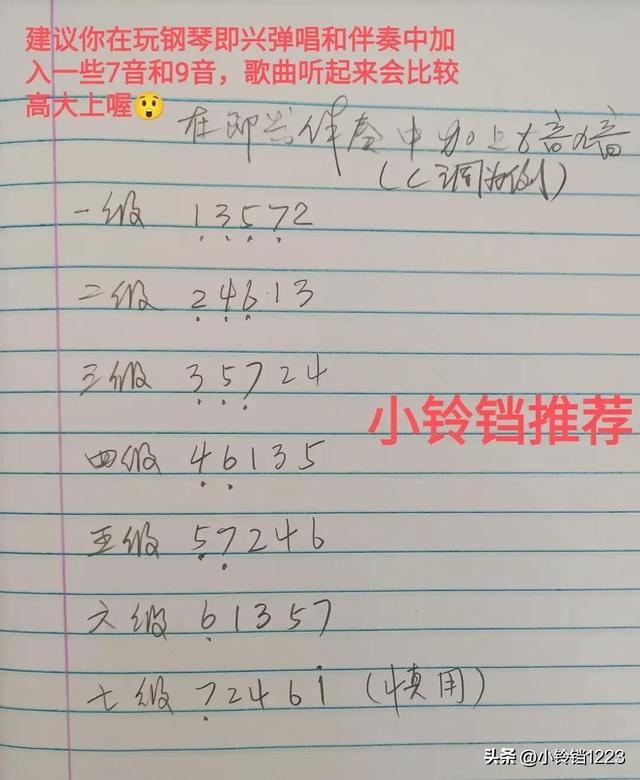 建议你在玩钢琴即兴弹唱和伴奏中加
入一些7音和9音，歌曲听起来会比较
高大上喔😲
在即兴伴奏中加上7音9音
(C调为例)
一级 13572
二级 24613
三级 35724
小铃铛推荐
四级 46135
五级 57246
六级 61357
七级 72461 (慎用)
头条 @小铃铛1223